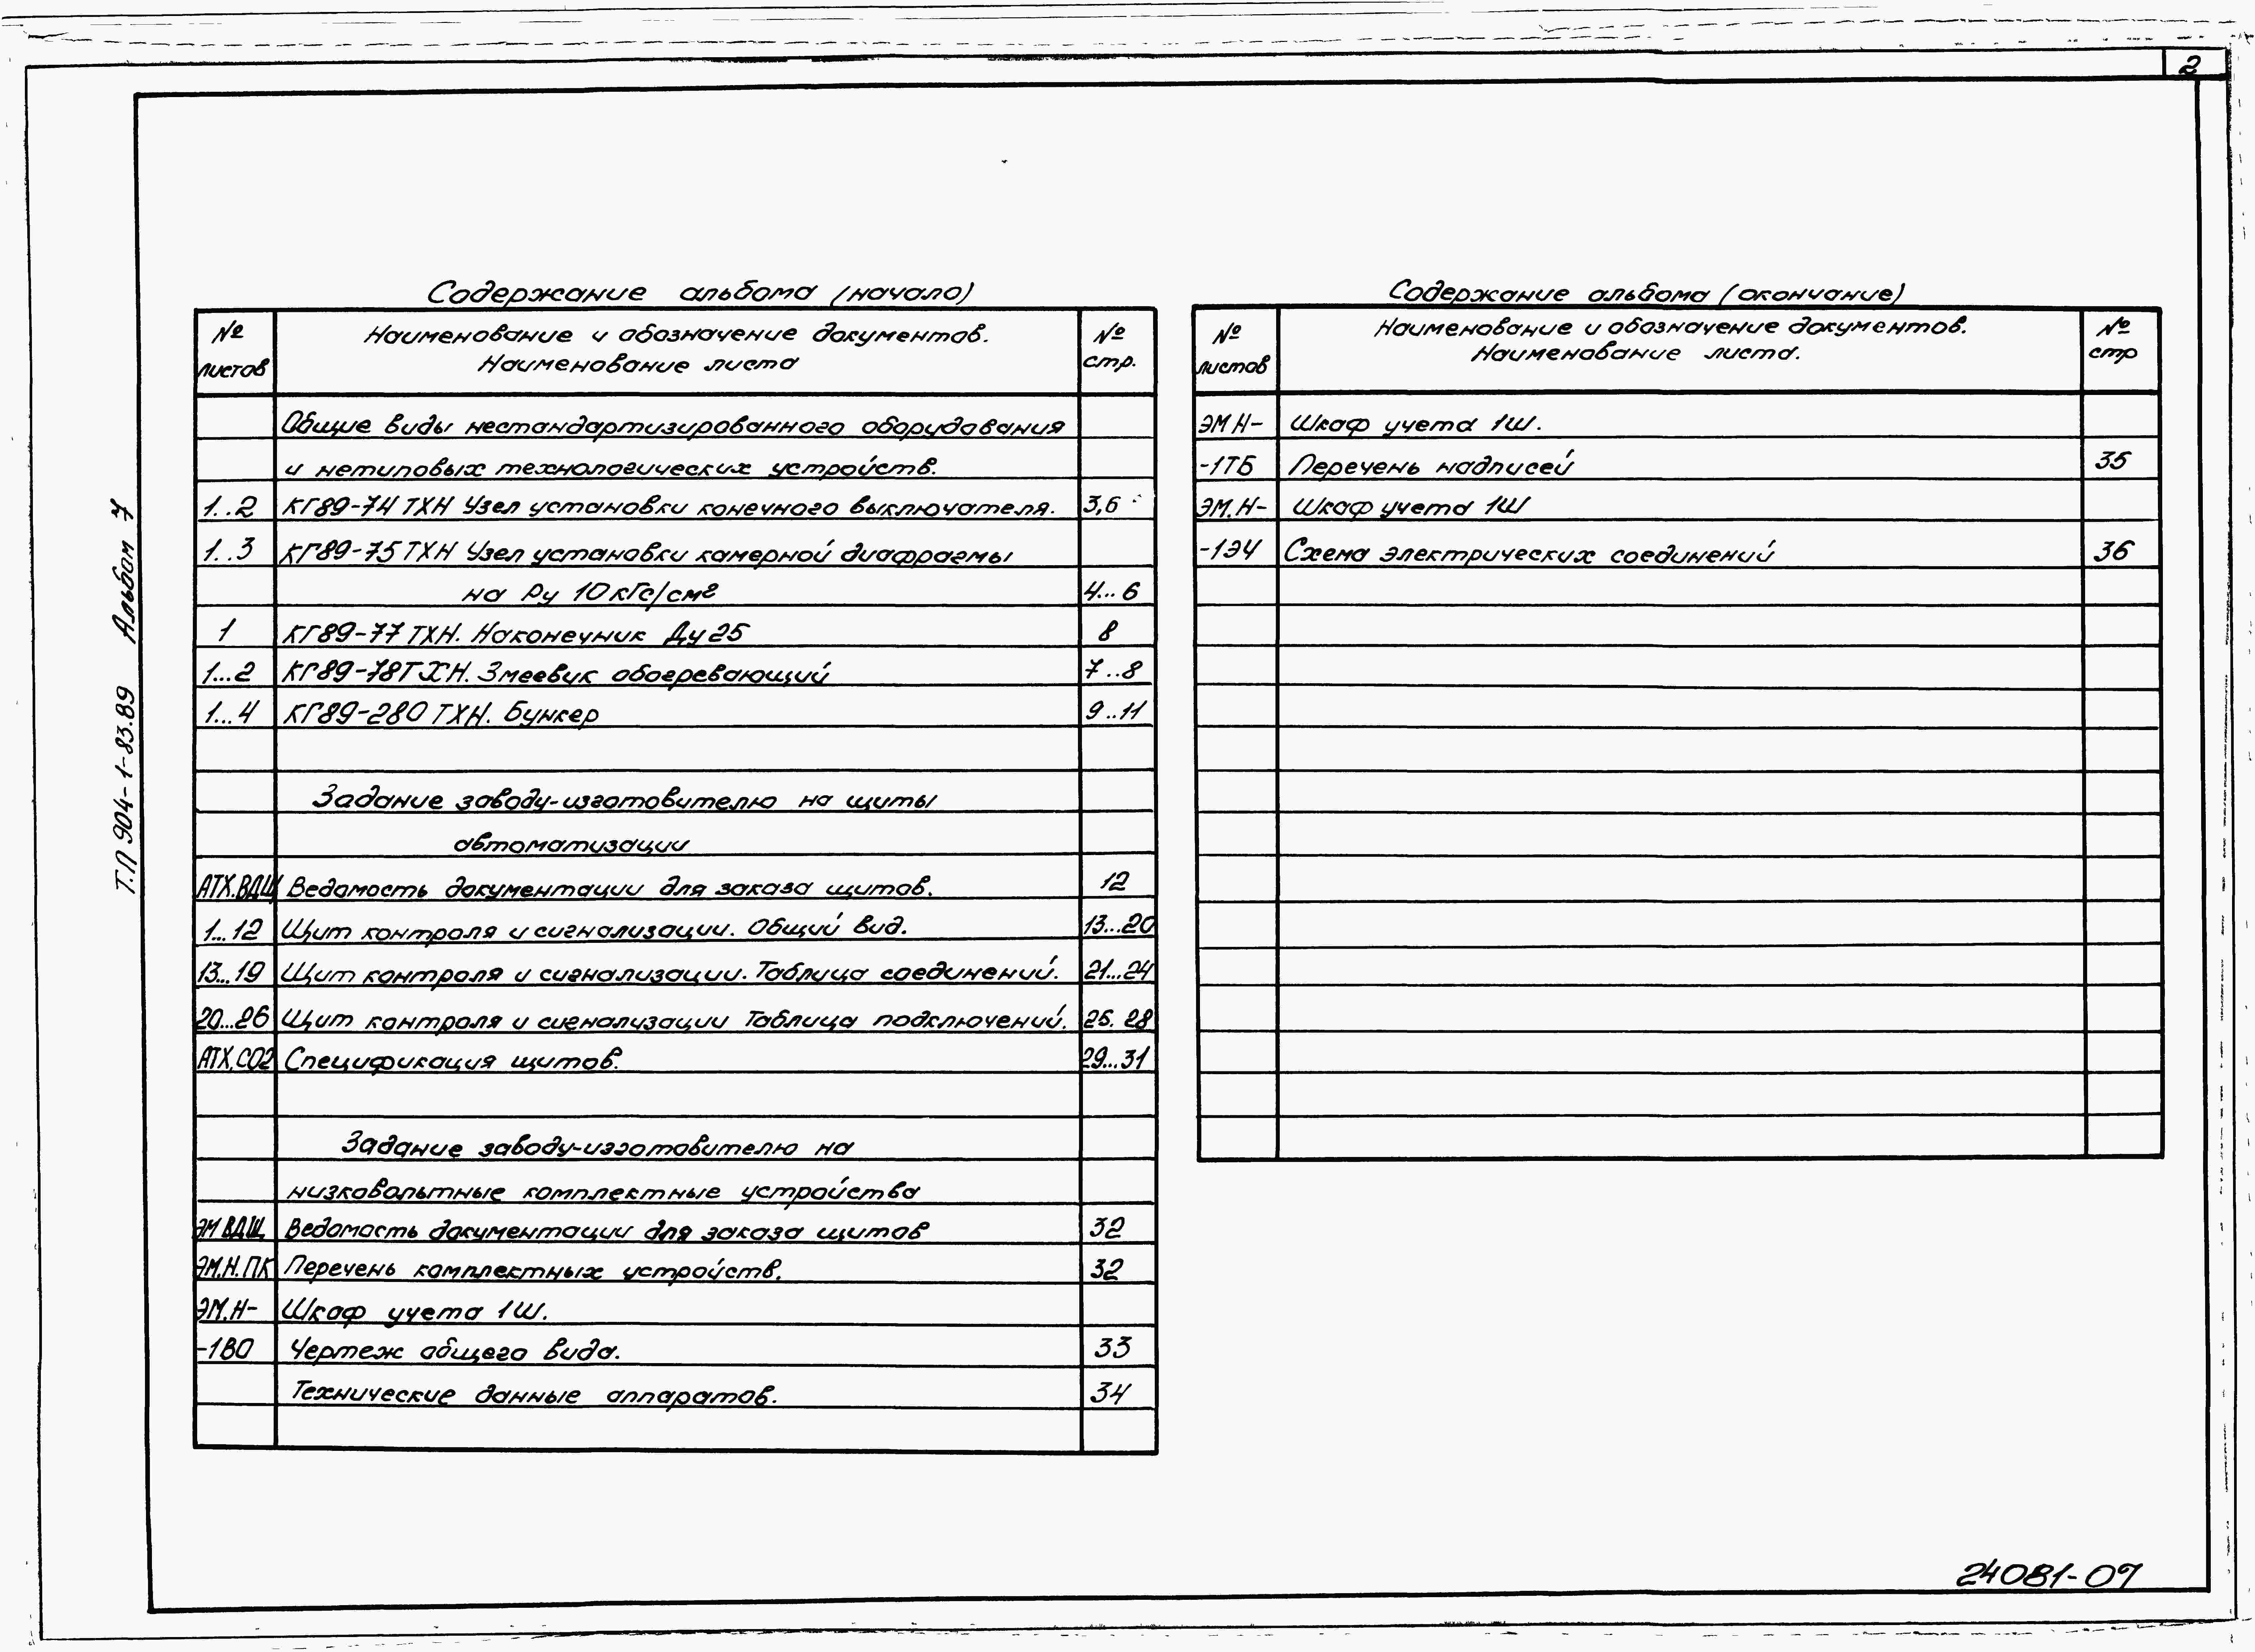 2
Т.П 904-1-83.89 Альбом 7
Содержание альбома (начало)
№ листов Наименование и обозначение документов. Наименование листа № стр.
Общие виды нестандартизированного оборудования
и нетиповых технологических устройств.
1..2 КГ89-74 ТХН Узел установки конечного выключателя. 3,6
1..3 КГ89-75 ТХН Узел установки камерной диафрагмы
на Ру 10 кГс/см2 4...6
1 КГ89-77 ТХН. Наконечник Ду 25 8
1...2 КГ89-78 ТХН. Змеевик обогревающий 7..8
1...4 КГ89-280 ТХН. Бункер 9..11
Задание заводу-изготовителю на щиты
автоматизации
АТХ.ВДЩ Ведомость документации для заказа щитов. 12
1...12 Щит контроля и сигнализации. Общий вид. 13...20
13...19 Щит контроля и сигнализации. Таблица соединений. 21...24
20...26 Щит контроля и сигнализации Таблица подключений. 25. 28
АТХ.СО2 Спецификация щитов. 29...31
Задание заводу-изготовителю на
низковольтные комплектные устройства
ЭМ ВДЩ Ведомость документации для заказа щитов 32
ЭМ.Н.ПК Перечень комплектных устройств. 32
ЭМ.Н- Шкаф учета 1Ш.
-1ВО Чертеж общего вида. 33
Технические данные аппаратов. 34
Содержание альбома (окончание)
№ листов Наименование и обозначение документов. Наименование листа. № стр
ЭМ Н- Шкаф учета 1Ш.
-1ТБ Перечень надписей 35
ЭМ.Н- Шкаф учета 1Ш
-1Э4 Схема электрических соединений 36
24081-07